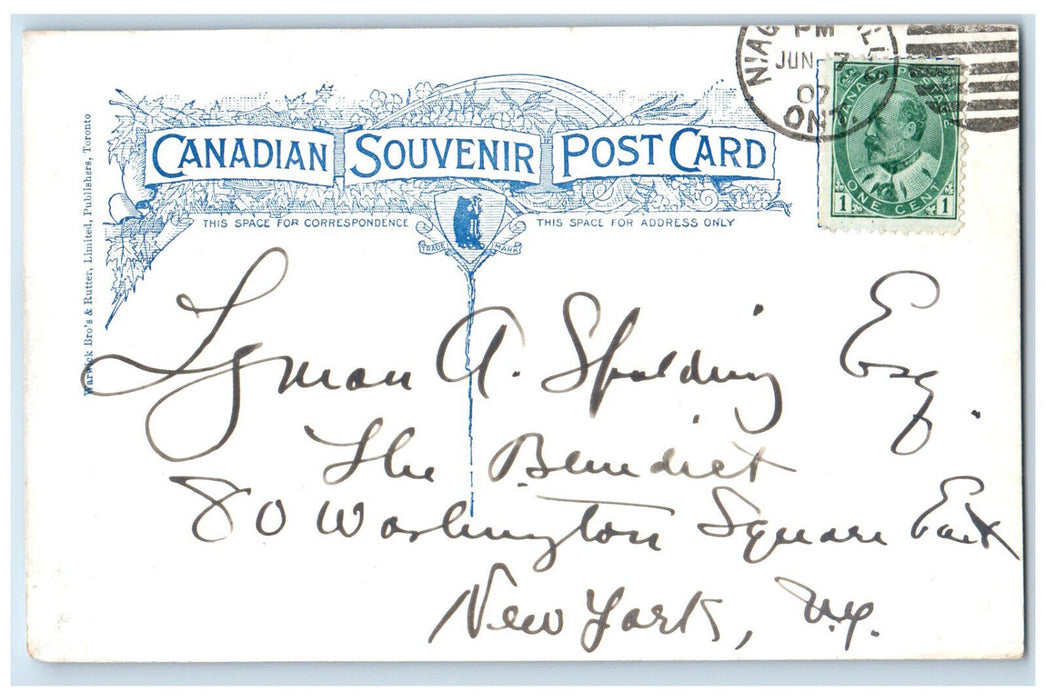 NIAG LLS
PM
JUN 7
07
ONT.
CANADA POSTAGE
1 ONE CENT 1
CANADIAN SOUVENIR POST CARD
THIS SPACE FOR CORRESPONDENCE
THIS SPACE FOR ADDRESS ONLY
TRADE MARK
Warwick Bro's & Rutter, Limited, Publishers, Toronto
Lyman A. Spalding Esq.
The Benedict
80 Washington Square East
New York, N.Y.